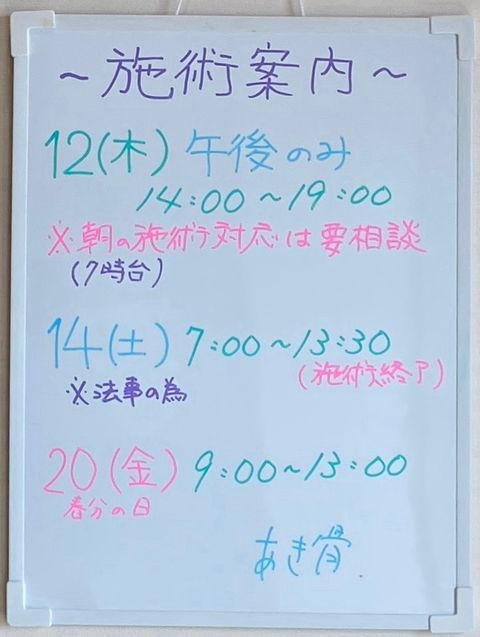 ～施術案内～
12(木) 午後のみ
14:00～19:00
※朝の施術対応は要相談
(7時台)
14(土) 7:00～13:30
(施術終了)
※法事の為
20(金) 9:00～13:00
春分の日
あき骨